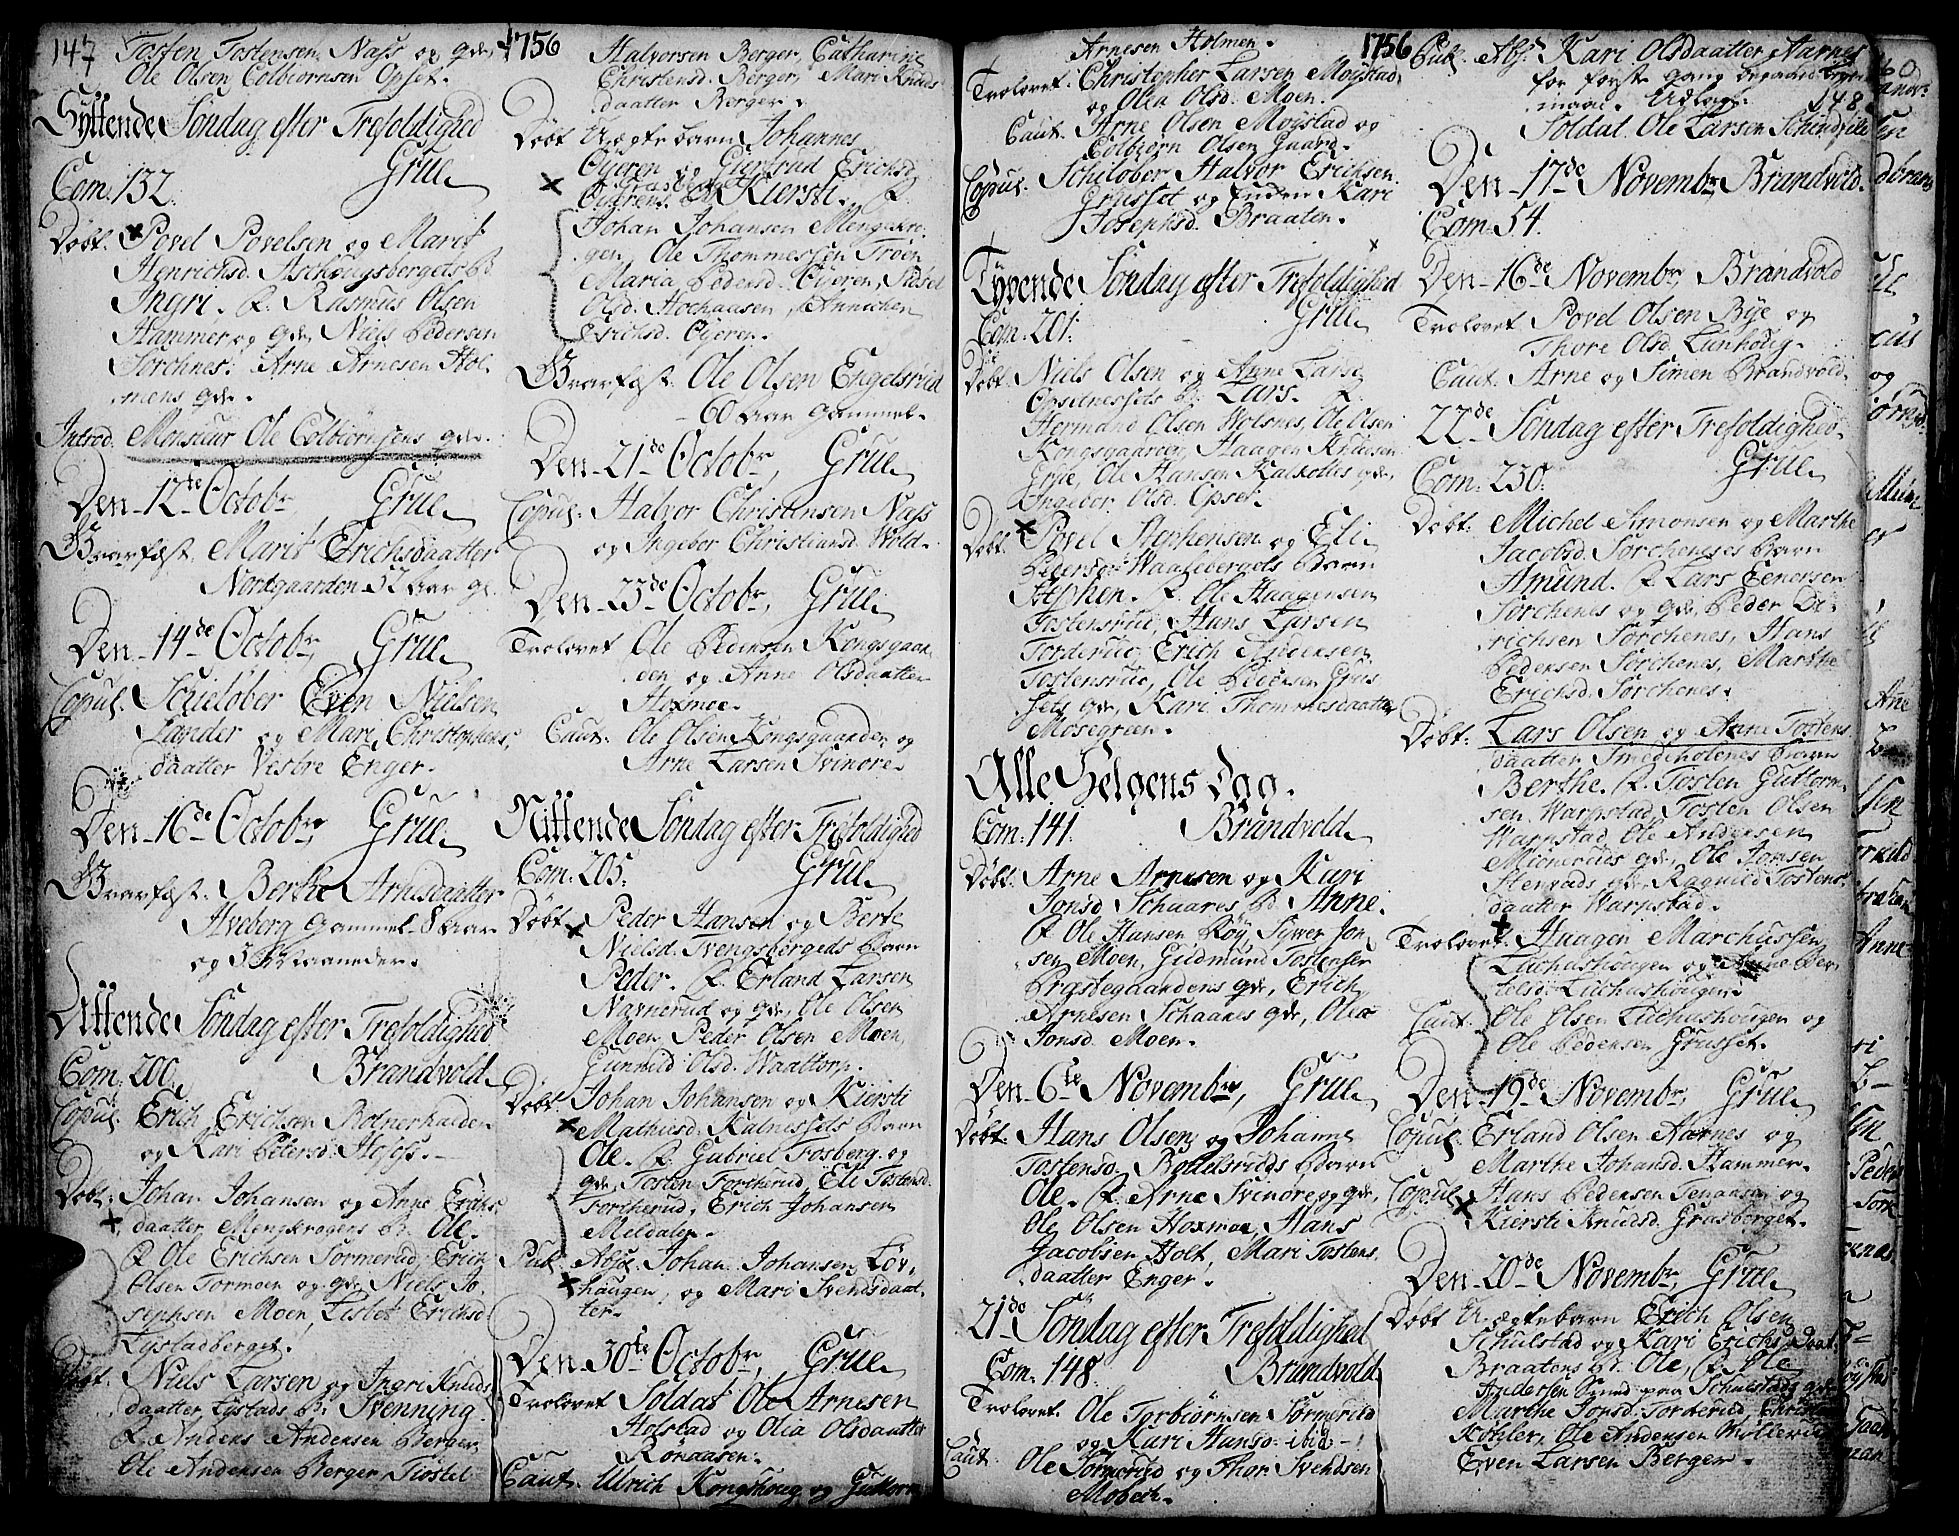 147
Tosten Tostensen Næss og qde,
Ole Olsen, Colbiørnsen Opset.
Syttende Søndag efter Trefoldighed
Com. 132. Grue
Døbt. Povel Povelsen og Marit
Henrichsd. Aschougsbergets B.
Ingri. F. Rasmus Olsen
Hammer og qde, Niels Pedersen
Sorchnes. Arne Arnesen Hol-
mens qde.
Introd. Monsieur Ole Colbiørnsens qde.
Den 12te Octobr, Grue
Gravfæst. Marit Erichsdaatter
Nordgaarden 52 aar gl.
Den 14de Octobr, Grue
Copul. Schieløber Even Nielsen
Lander og Mari Christophers-
daatter Vestre Enger.
Den 16de Octobr, Grue
Gravfæst. Berthe Arnesdaatter
Alveberg gammel 8 aar
og 3 Maaneder.
Attende Søndag efter Trefoldighed
Com. 200. Brandvold
Copul. Erich Erichsen Rotnerhalde
og Kari Pedersd. Hofoss.
Døbt. Johan Johansen og Anne Erichs-
daatter Mengkrogens B. Ole.
F. Ole Erichsen Sormerud, Erich
Olsen Tormoen og qde, Niels Jo-
sephsen Moen, Lisbet Erichsd.
Lystadberget.
Døbt. Niels Larsen og Ingri Knuds-
daatter Lystads B. Svenning.
F. Anders Andersen Berger,
Ole Andersen Berger, Tostel
1756
Halvorsen Berger, Catharine
Christensd. Berger, Mari Knuds-
daatter Berger.
Døbt Uægte barn Johannes
Øyeren og Giertrud Erichsd.
Øyerens B. Kiersti. F.
Johan Johansen Mengekro-
gen, Ole Thommessen Trøen
Maria Pedersd. Øyeren, Sidsel
Olsd. Hochaasen, Annichen
Erichsd. Øyeren.
Gravfæst. Ole Olsen Engelsrud
60 aar gammel.
Den 21de Octobr, Grue
Copul. Halvor Christensen Næss
og Ingebor Christiansd. Wold.
Den 23de Octobr, Grue
Trolovet Ole Pedersen Kongsgaar-
den og Anne Olsdaatter
Hoxmoe.
Caut. Ole Olsen Kongsgaarden og
Arne Larsen Svinøre.
Nittende Søndag efter Trefoldighed
Com. 205. Grue
Døbt Peder Hansen og Berte
Nielsd. Tvengsbergeds Barn
Peder. F. Erland Larsen
Navnerud og qde, Ole Olsen
Moen, Peder Olsen Moen,
Gunnild Olsd. Waaltorp.
Døbt. Johan Johansen og Kiersti
Mathiesd. Kalnessets Barn
Ole. F. Gabriel Fosberg og
qde, Tosten Forcherud, Eli Tostensd.
Forcherud, Erich Johansen
Meldalen.
Pub. Abs. Johan Johansen Løv-
haugen, og Mari Svendsdaat-
ter.
Den 30te Octobr, Grue
Trolovet Soldat Ole Arnesen
Holstad og Olia Olsdaatter
Rønaasen.
Caut. Ulrich Kongshoug og Guttorm
Arnesen Holmen.
Trolovet. Christopher Larsen Moystad
og Olia Olsd. Moen.
Caut. Arne Olsen Moystad og
Colbiørn Olsen Gaard.
Copul. Schiløber Halvor Erichsen
Grusset og Enchen Kari
Josephsd. Braaten.
Tyvende Søndag efter Trefoldighed
Com. 201. Grue
Døbt Niels Olsen og Anne Larsd.
Opsetnessets B. Lars. F.
Hermand Olsen Wolsnes, Ole Olsen
Kongsgaarden, Haagen Knudsen
Grue, Ole Hansen Kalkolles qde,
Ingebor Olsd. Opset.
Døbt. Povel Stephensen og Eli
Pedersd. Waalebergets Barn
Stephen. F. Ole Haagensen
Tostensrud, Hans Larsen
Torderud, Erich Andersen
Tostensrud, Ole Pedersen Grus-
sets qde, Kari Thommesdaatter
Mosegreen.
Alle Helgens Dag.
Com. 141. Brandvold
Døbt. Arne Arnesen og Kari
Jonsd. Schaares B. Anne.
F. Ole Hansen Røy, Siwer Jon-
sen Moen, Gudmund Tostensen
Præstegaardens qde, Erich
Arnesen Schaares qde, Olea
Jonsd. Moen.
Den 6te Novembr, Grue
Døbt. Hans Olsen og Johanne
Tostensd. Bottelsruds Barn
Ole. F. Arne Svinøre og qde,
Ole Olsen Hoxmoe, Hans
Jacobsen Holt, Mari Tostens-
daatter Enger.
21de Søndag efter Trefoldighed
Com. 148. Brandvold
Trolovet. Ole Torbiørnsen Sormerud
og Kari Hansd. ibid.
Caut. Ole Sormerud og Thor Svendsen
Mobech.
1756
Pub. Abs. Kari Olsdaatter Aarnes
for første gang begaaed Leyer-
maal. Udlagt
Soldat Ole Larsen
148
Den 17de Novembr, Brandvold
Com. 54.
Den 16de Novembr, Brandvold
Trolovet Povel Olsen Bye og
Thore Olsd. Lunhoug.
Caut. Arne og Simen Brandvold.
22de Søndag efter Trefoldighed.
Com. 230. Grue
Døbt. Michel Simonsen og Marthe
Jacobsd. Sorchenes Barn
Amund. F. Lars Eenersen
Sorchenes og qde, Peder Di-
richsen Sorchenes, Hans
Pedersen Sorchenes, Marthe
Erichsd. Sorchenes.
Døbt. Lars Olsen og Anne Tostens-
daatter Smedholenes Barn
Berthe. F. Tosten Guttorm-
sen Warpstad, Tosten Olsen
Warpstad, Ole Andersen
Mieneruds qde, Ole Jonsen
Stenrads qde, Ragnild Tostens-
daatter Warpstad.
Trolovet. Haagen Marchussen
Luchushougen og Anne Ber-
telsd. Luchushougen.
Caut. Ole Olsen Luchushougen og
Ole Pedersen Grusset.
Den 19de Novembr, Grue
Copul. Erland Olsen Aarnes og
Marthe Johansd. Hammer.
Copul. Hans Pedersen Tenaasen og
Kiersti Knudsd. Grasberget.
Den 20de Novembr, Grue
Døbt Uægtebarn Erich Olsen
Schulstad og Kari Erichsdaat.
Braatens B. Ole, F. Ole
Andersen Smed paa Schulstads qde
Marthe Jonsd. Torkerud
Kohler, Ole Andersen
Even Larsen Berger.